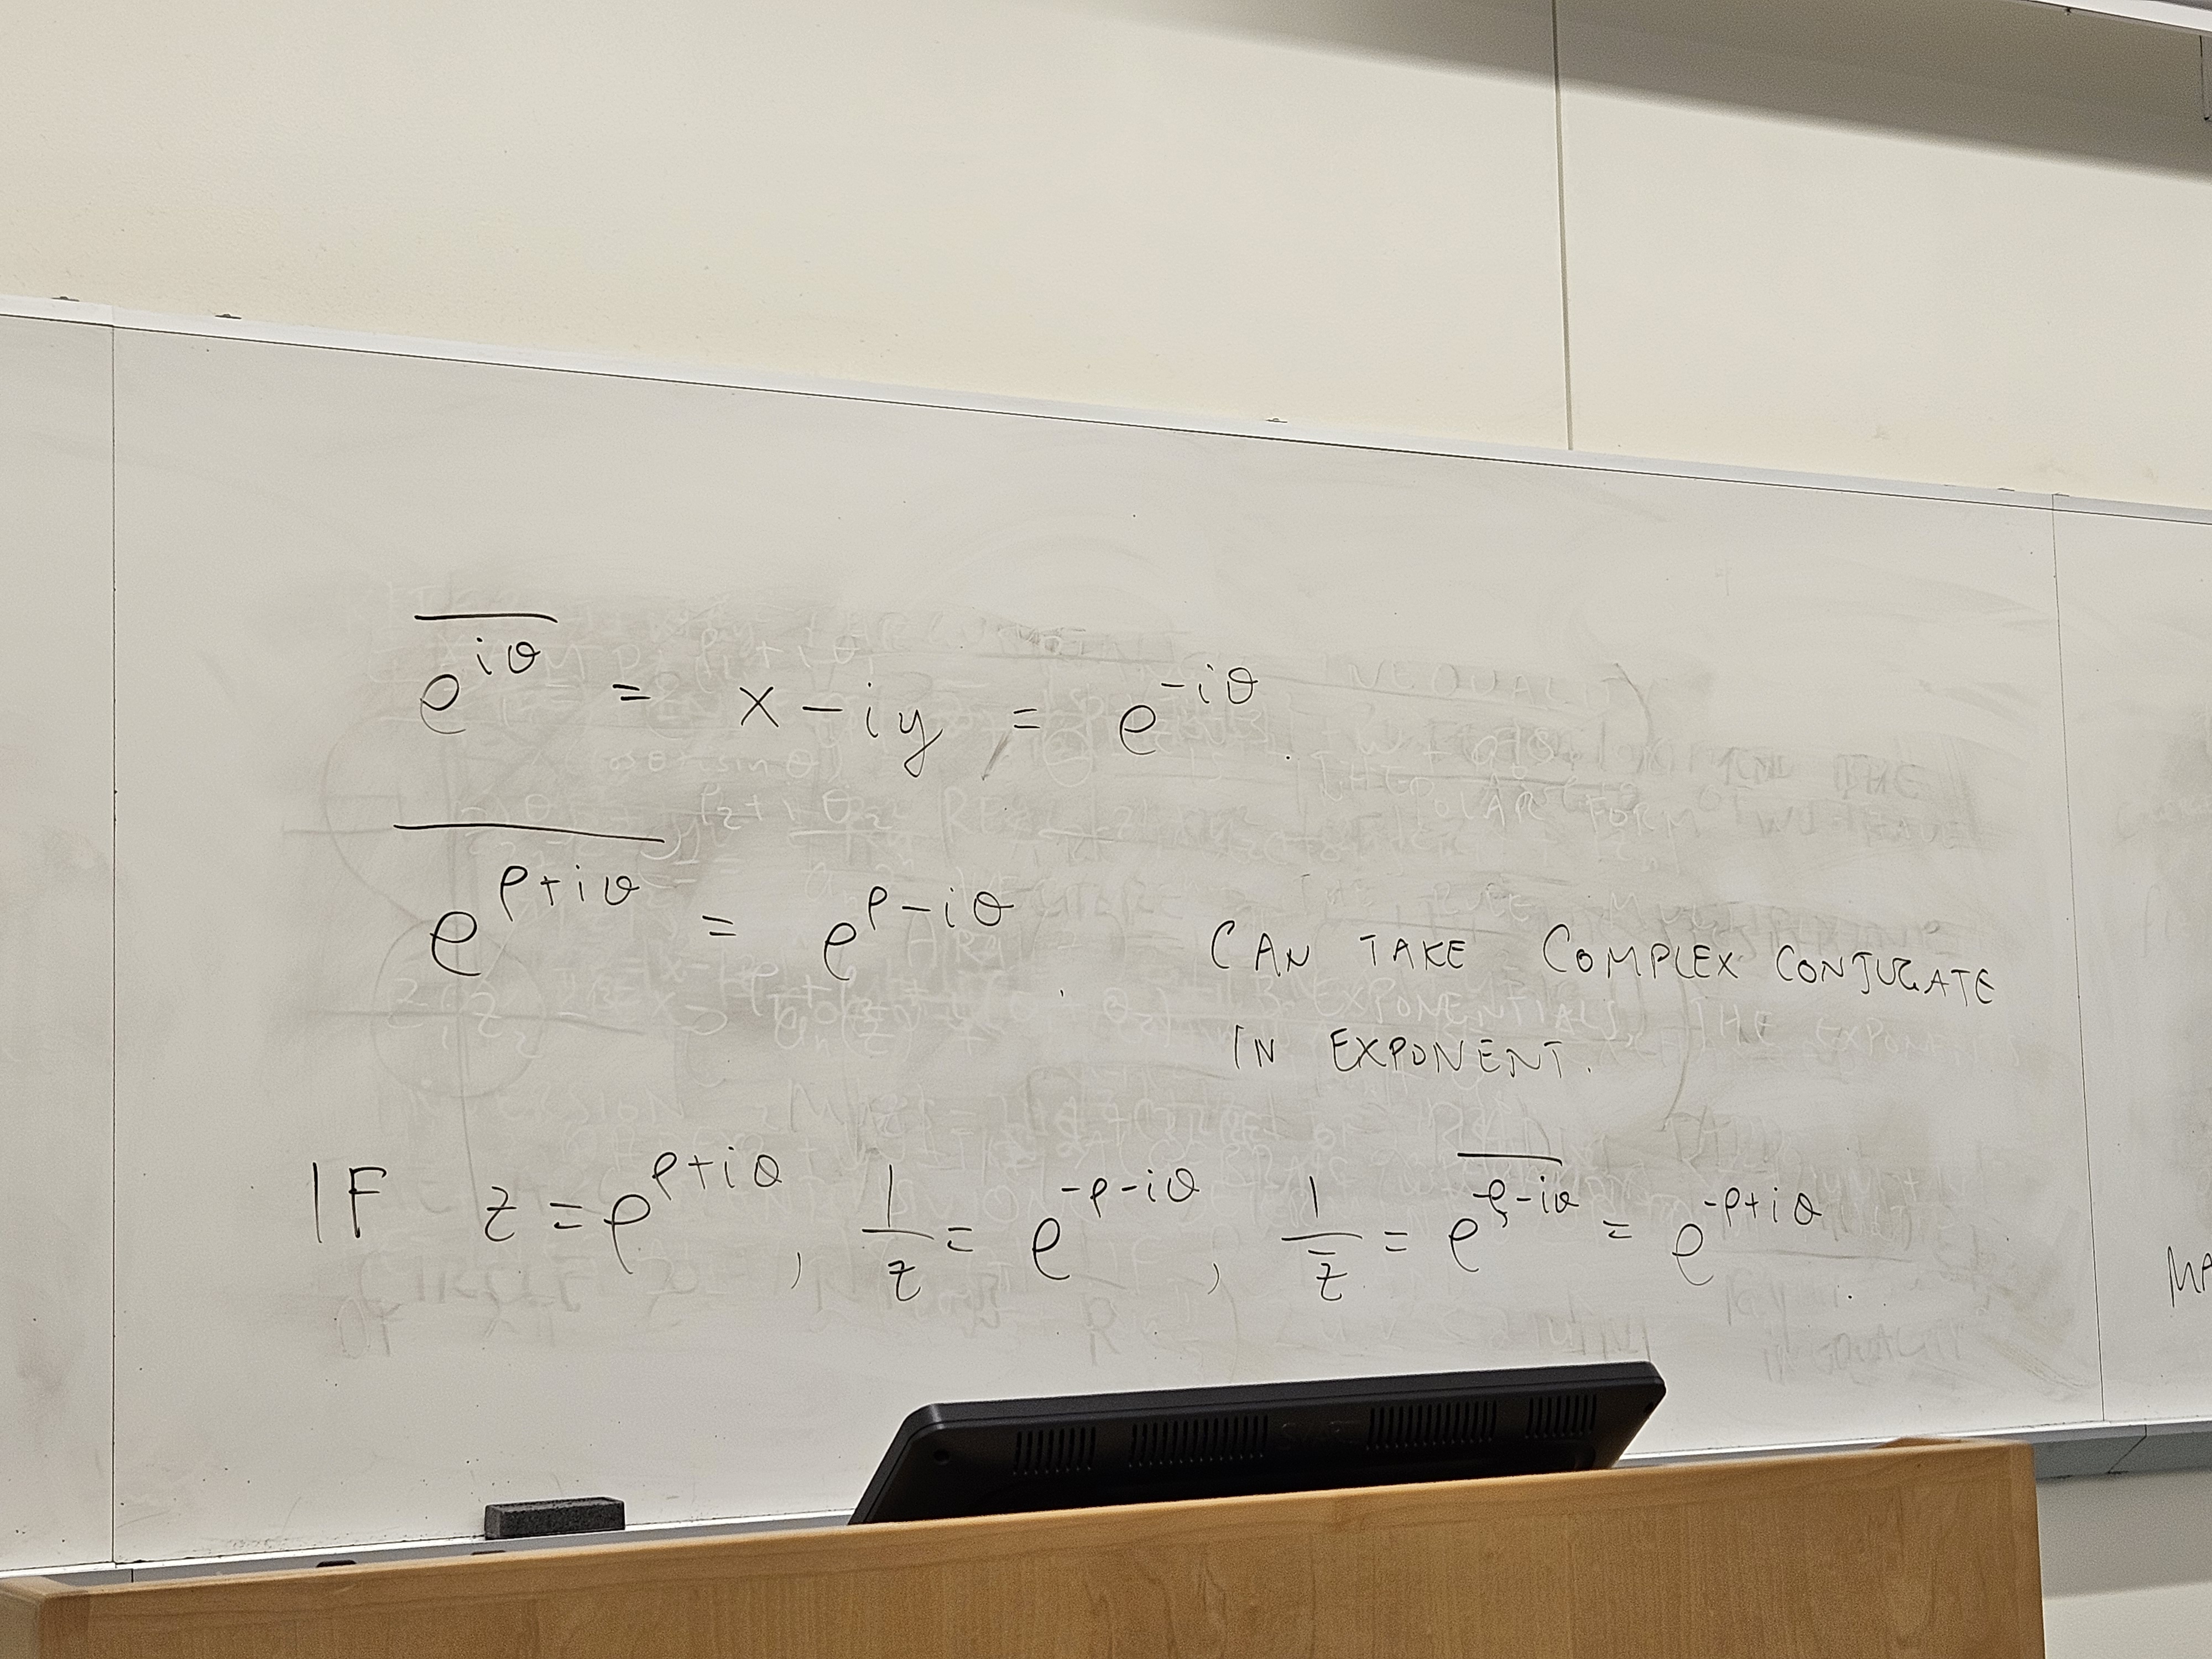 $\overline{e^{i\theta}} = x - iy = e^{-i\theta}.$
$\overline{e^{\rho+i\theta}} = e^{\rho-i\theta}.$ CAN TAKE COMPLEX CONJUGATE
IN EXPONENT.
IF $z = e^{\rho+i\theta}, \frac{1}{z} = e^{-\rho-i\theta}, \frac{1}{\bar{z}} = e^{\overline{-\rho-i\theta}} = e^{-\rho+i\theta}.$
MA